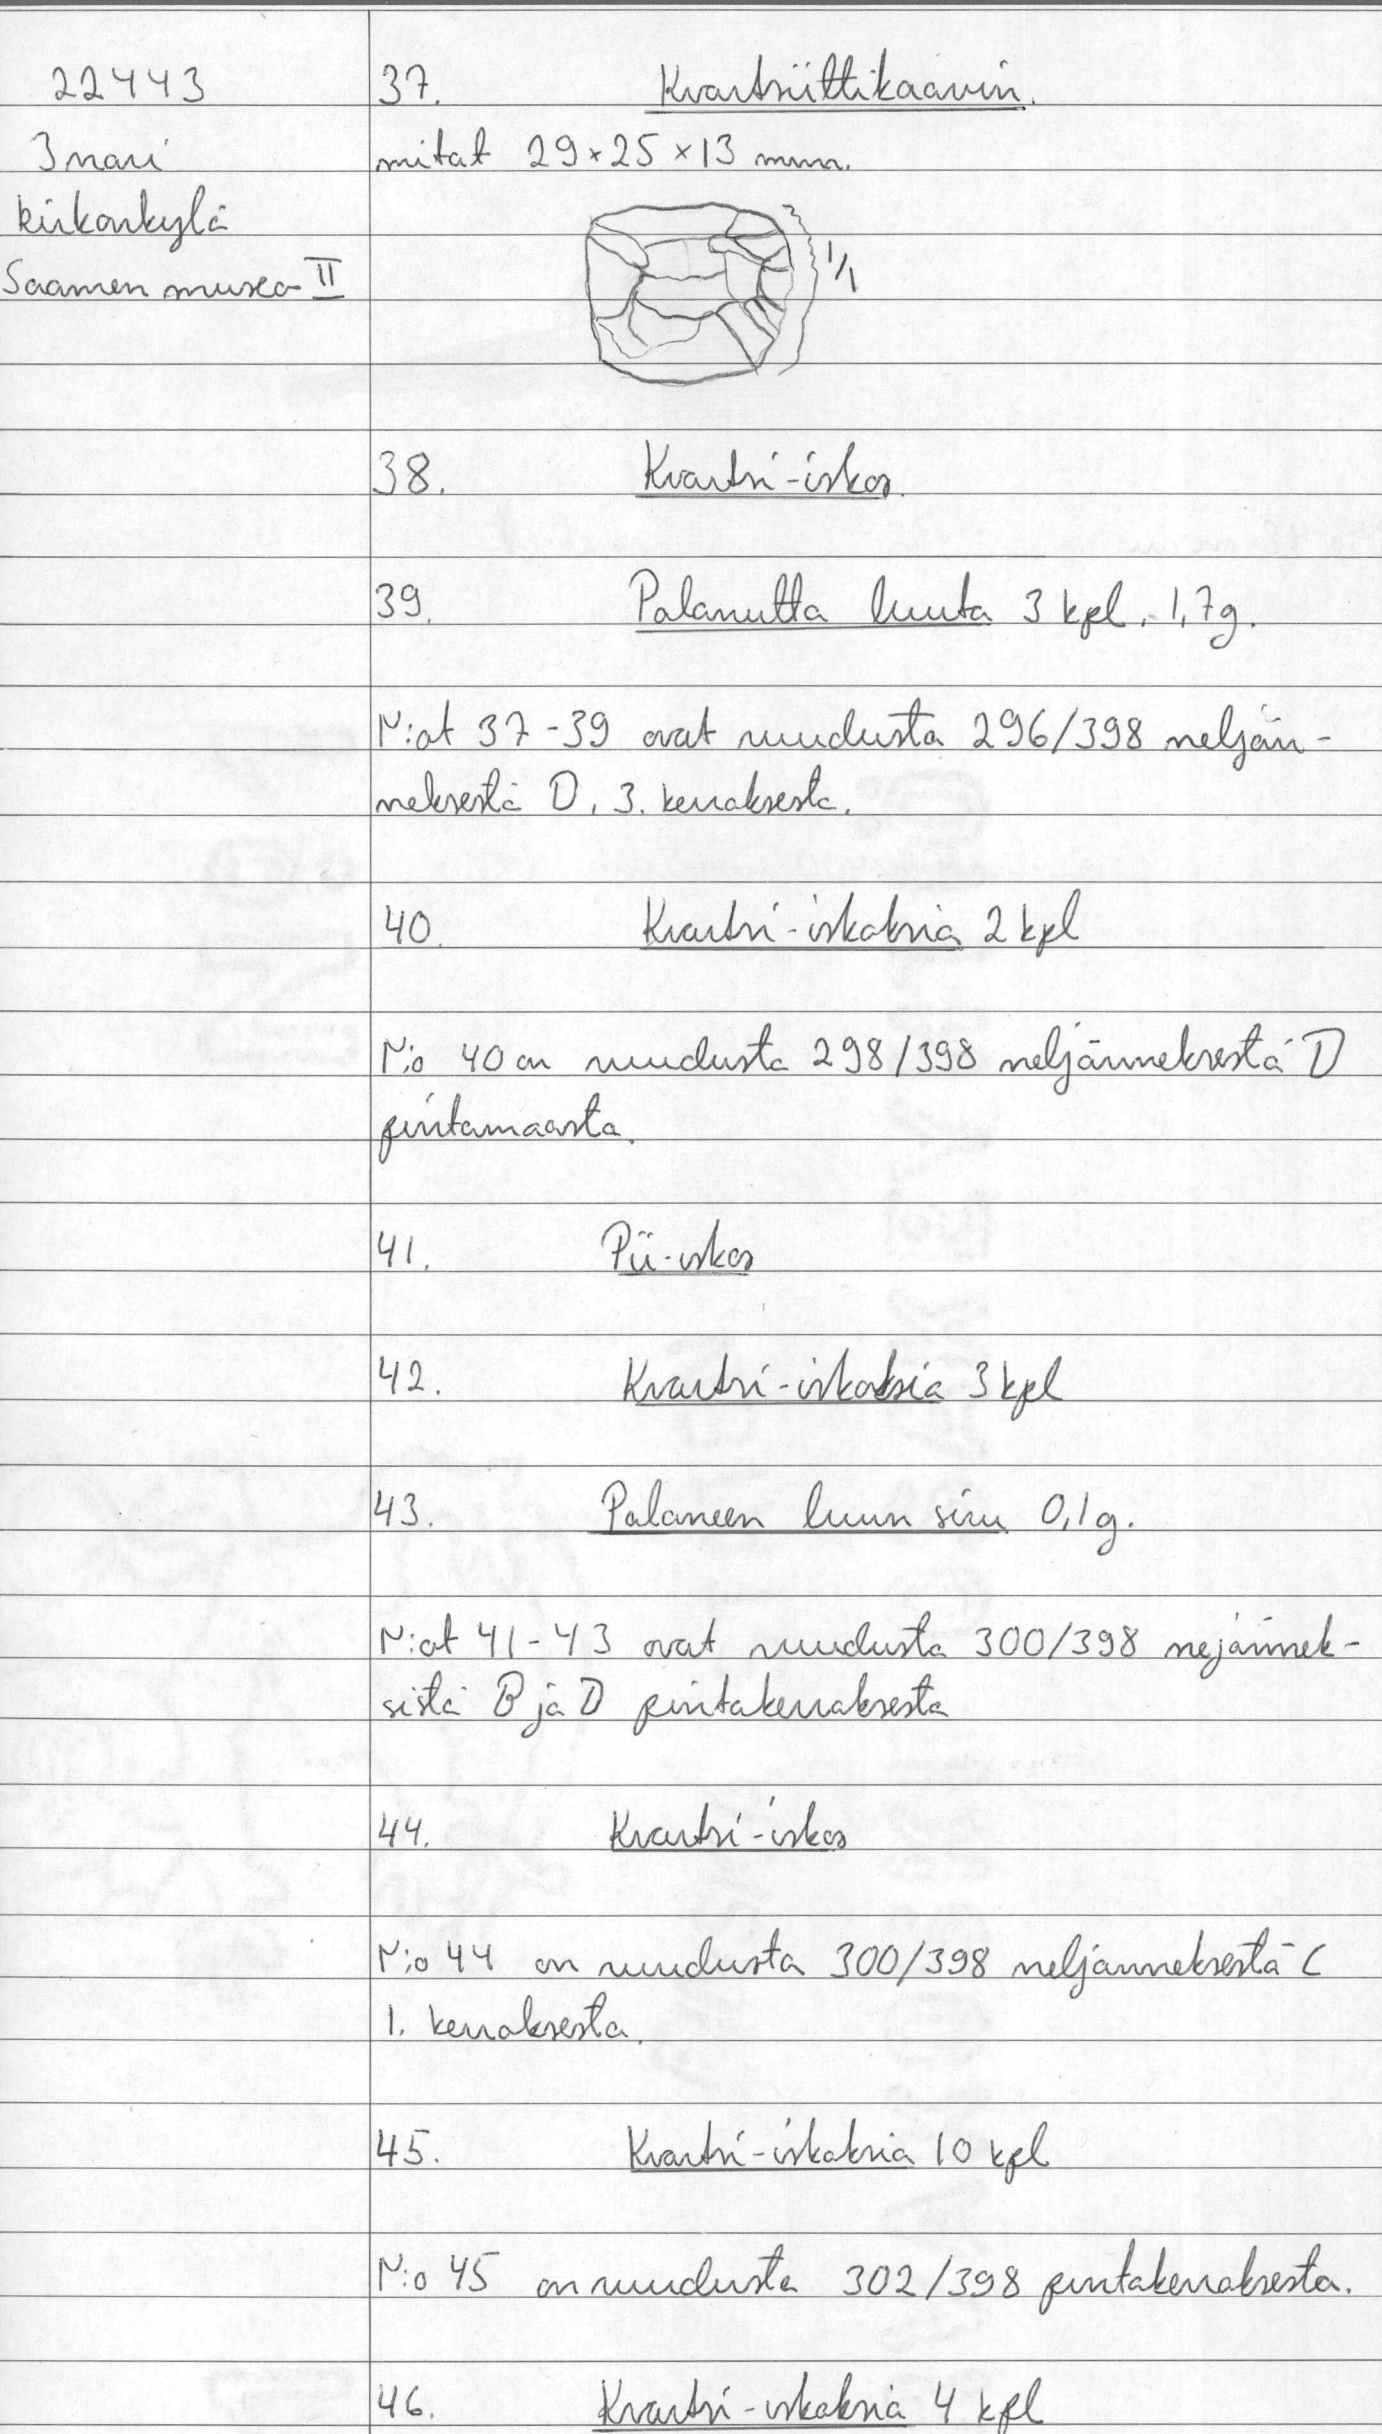 22443
Inari
kirkonkylä
Saamen museo II
37. Kvartsiittikaavin.
mitat 29×25×13 mm.
1/1
38. Kvartsi-iskos.
39. Palanutta luuta 3 kpl, 1,7g.
N:ot 37-39 ovat ruudusta 296/398 neljän-
neksestä D, 3. kerroksesta.
40. Kvartsi-iskoksia 2 kpl
N:o 40 on ruudusta 298/398 neljänneksestä D
pintamaasta.
41. Pii-iskos
42. Kvartsi-iskoksia 3 kpl
43. Palaneen luun siru 0,1g.
N:ot 41-43 ovat ruudusta 300/398 nejännek-
sistä B ja D pintakerroksesta
44. Kvartsi-iskos
N:o 44 on ruudusta 300/398 neljänneksestä C
1. kerroksesta.
45. Kvartsi-iskoksia 10 kpl
N:o 45 on ruudusta 302/398 pintakerroksesta.
46. Kvartsi-iskoksia 4 kpl